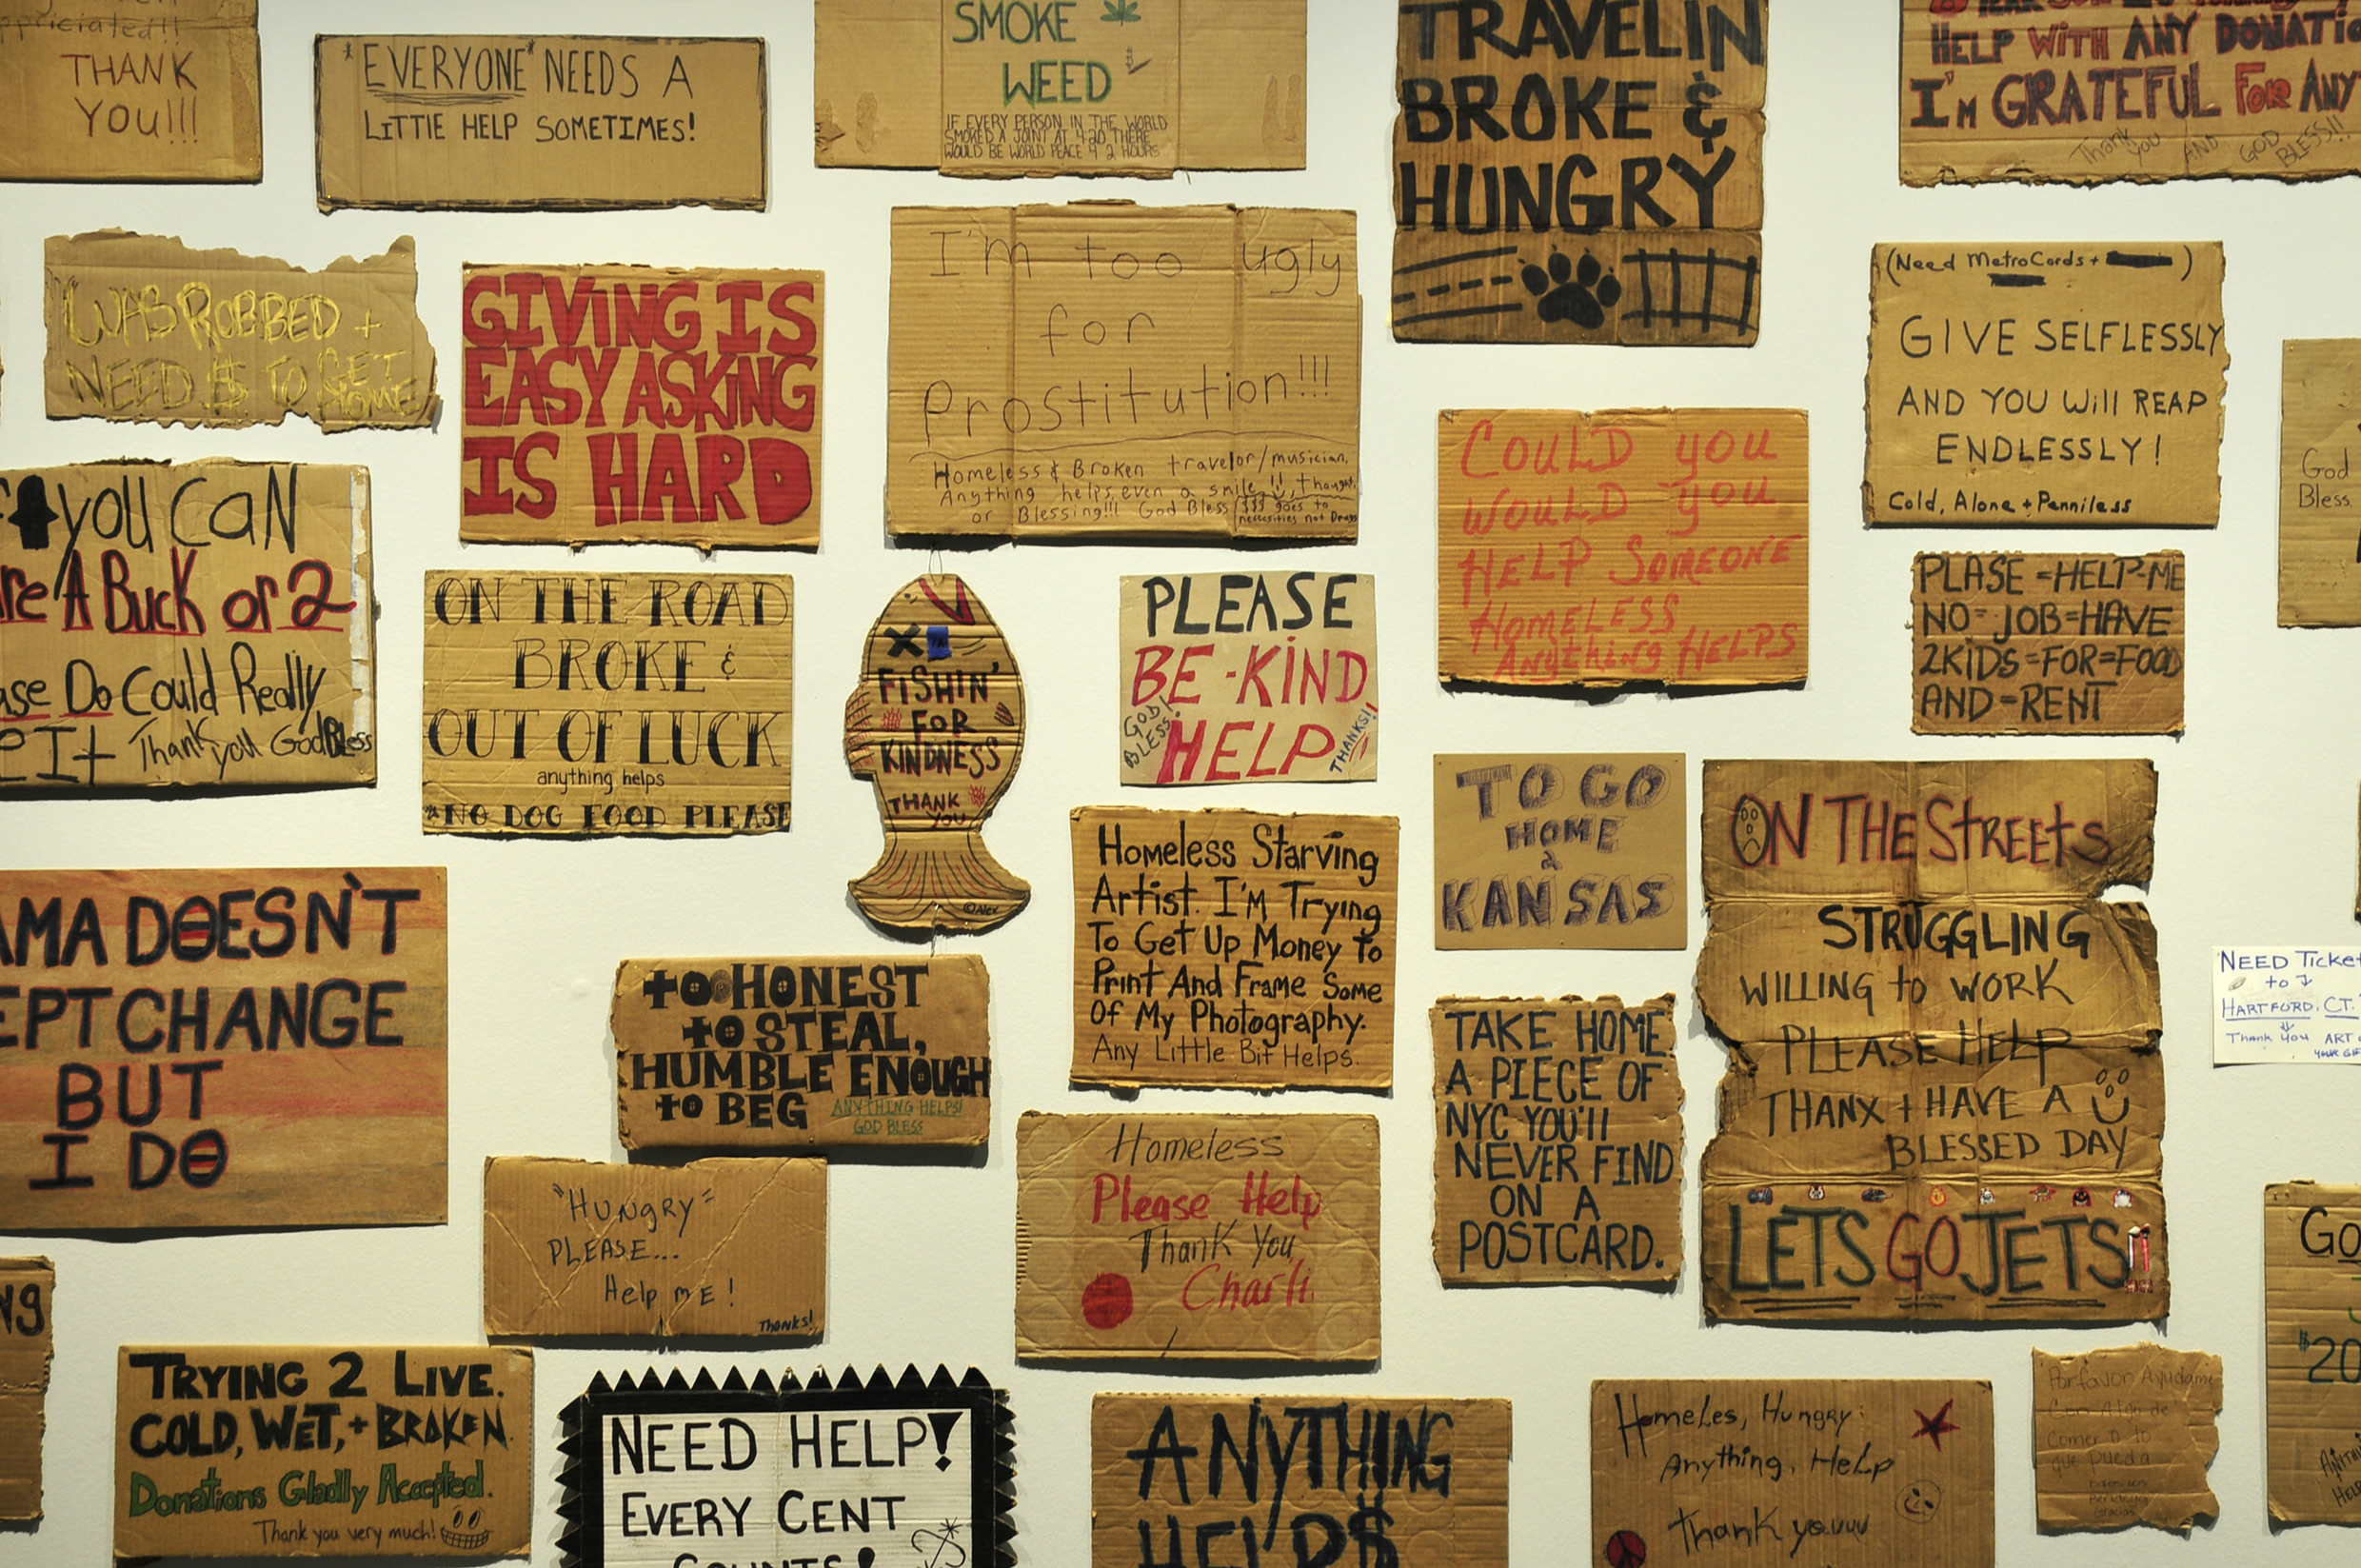 THANK
YOU!!!
"EVERYONE" NEEDS A
LITTlE HELP SOMETIMES!
SMOKE
WEED
IF EVERY PERSON IN THE WORLD
SMOKED A JOINT AT 4:20 THERE
WOULD BE WORLD PEACE 4 2 HOURS
TRAVELIN
BROKE &
HUNGRY
HELP WITH ANY
I'M GRATEFUL FOR ANY
Thank you AND GOD BLESS!!
WAS ROBBED +
NEED $ TO GET
HOME
GIVING IS
EASY ASKING
IS HARD
I'm too ugly
for
Prostitution!!!
Homeless & Broken travelor/musician.
Anything helps, even a smile, thought,
or Blessing!!! God Bless
$$$ goes to
necessities not Drugs
(Need MetroCards + )
GIVE SELFLESSLY
AND YOU Will REAP
ENDLESSLY!
Cold, Alone + Penniless
COULD you
WOULD you
HELP SOMEONE
HOMELESS
Anything HELPS
God
Bless
you CaN
A Buck or 2
Do Could Really
It Thank you God Bless
ON THE ROAD
BROKE &
OUT OF LUCK
anything helps
*NO DOG FOOD PLEASE
FiSHIN'
FOR
KINDNESS
THANK
YOU
©Alex
PLEASE
BE-KiND
HELP
GOD BLESS!
THANKS!!
PLASE=HELP-ME
NO=JOB=HAVE
2KiDS=FOR=FOOD
AND=RENT
TO GO
HOME
2
KANSAS
ON THE StREEtS
STRUGGLING
WILLING to WORK
PLEASE HELP
THANX + HAVE A
BLESSED DAY
LETS GO JETS
Homeless Starving
Artist. I'm Trying
To Get Up Money To
Print And Frame Some
Of My Photography.
Any Little Bit Helps.
DOESN'T
CHANGE
BUT
I DO
to HONEST
to STEAL,
HUMBLE ENOUGH
to BEG
ANYTHING HELPS!
GOD BLESS
NEED Ticket
to
HARTFORD, CT.
Thank you ART
TAKE HOME
A PIECE OF
NYC YOU'll
NEVER FIND
ON A
POSTCARD.
Homeless
Please Help
Thank You
Charli
"HUNgRY"
PLEASE...
Help ME!
Thanks!
TRYING 2 LIVE.
COLD, WET, + BROKEN.
Donations Gladly Accepted.
Thank you very much!
NEED HELP!
EVERY CENT
COUNTS!
ANyTHING
HELP$
HomeLes, Hungry.
Anything, HeLp
Thank youuu
Porfavor Ayudame
Con Algo de
comer o lo
que pueda
Gracias
GO
$20